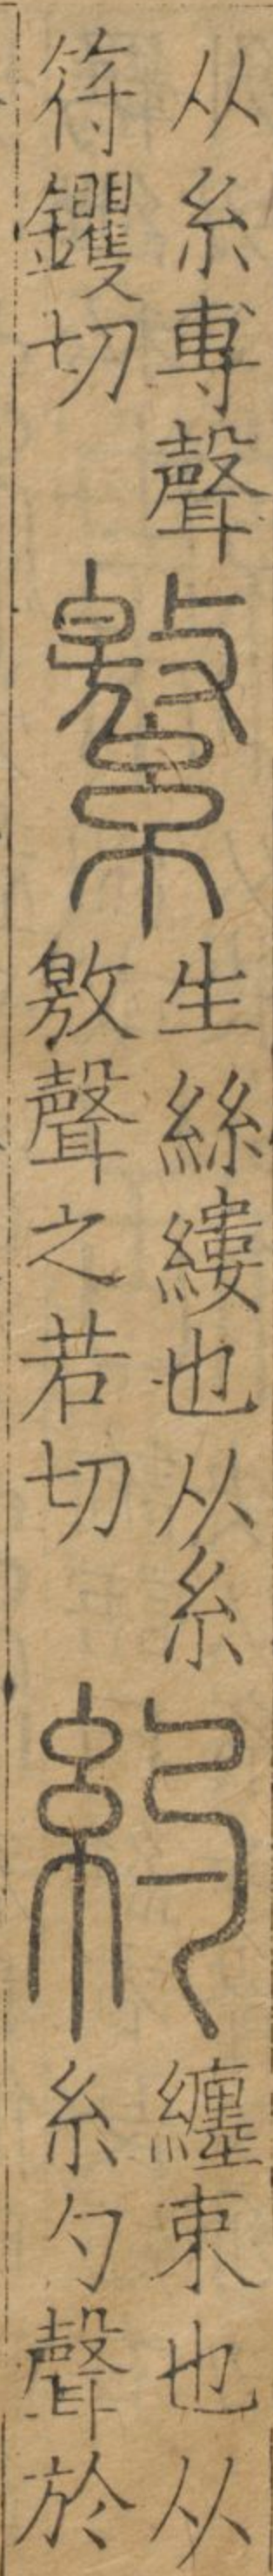 从糸尃聲
符钁切
繁
生絲縷也从糸
敫聲之若切
約
纏束也从
糸勺聲於